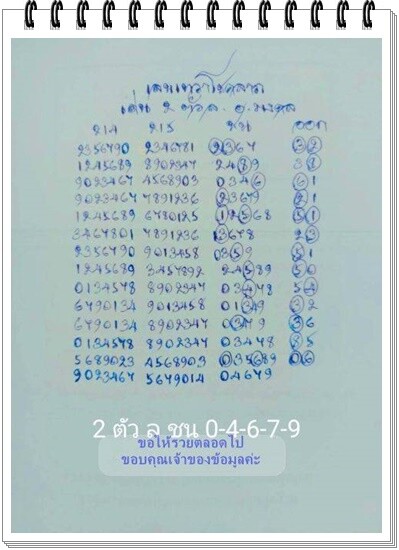 เด่น 2 ตัว ล.
214 215 ชน ออก
2356790 2346781 2367 32
1245689 8902347 2489 38
9023467 4568903 0346 61
9023467 7891236 23679 21
1245689 6780125 12568 51
3467801 4891236 3678 23
2356790 9013458 0359 51
1245689 3457892 24589 50
0134578 8902347 03478 54
6790134 9013458 01349 32
6790134 8902347 03479 36
0134578 8902347 03478 85
5689023 4568903 035689 06
9023467 5679014 04679
2 ตัว ล ชน 0-4-6-7-9
ขอให้รวยตลอดไป
ขอบคุณเจ้าของข้อมูลค่ะ